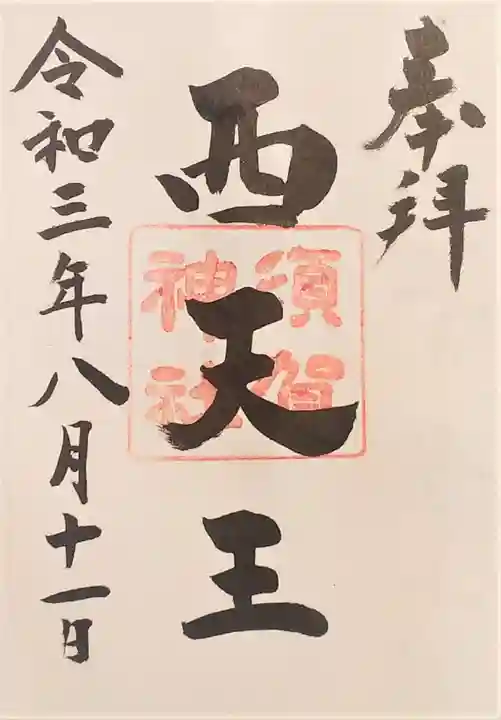 奉拝
西天王
須賀
神社
令和三年八月十一日